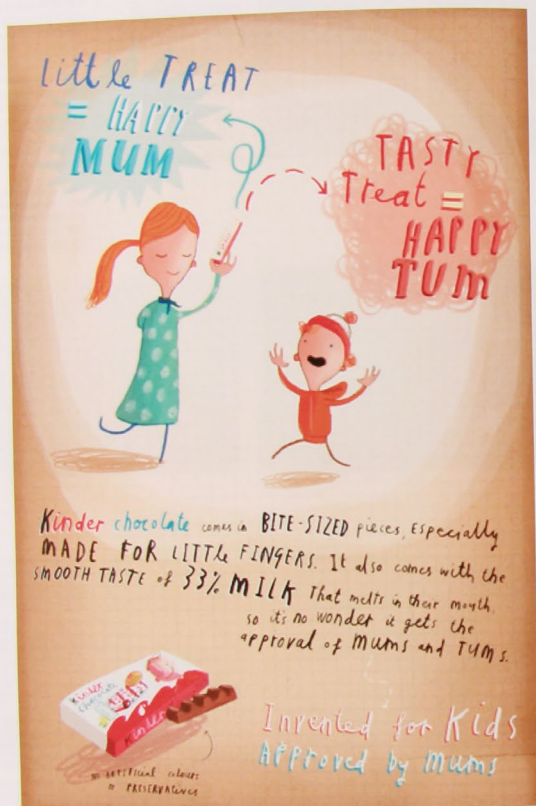 Little TREAT
= HAPPY
MUM
TASTY
Treat =
HAPPY
TUM
Kinder chocolate comes in BITE-SIZED pieces, Especially
MADE FOR LITTLE FINGERS. It also comes with the
SMOOTH TASTE of 33% MILK That melts in their mouth,
so it's no wonder it gets the
approval of MUMS and TUMS.
Kinder
chocolate
kinder
Invented for Kids
Approved by Mums
NO ARTIFICIAL colours
or PRESERVATIVES